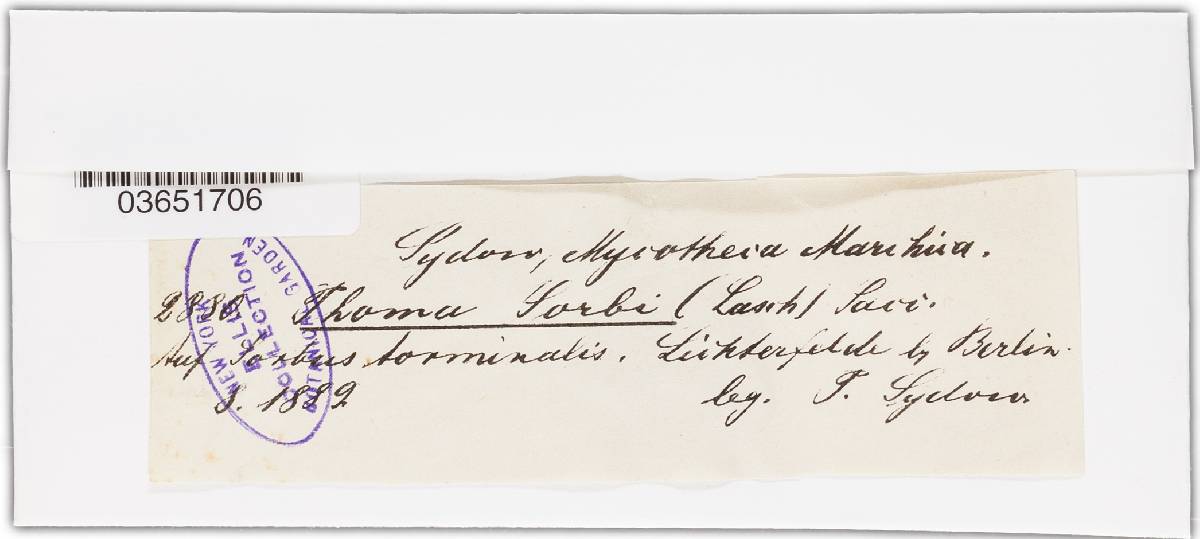 03651706
NEW YORK BOTANICAL GARDEN
ELLIS
COLLECTION
Sydow, Mycotheca Marchica.
Phoma Sorbi (Lasch) Sacc.
Auf Sorbus torminalis. Lichterfelde b/ Berlin.
8. 1889 leg. P. Sydow